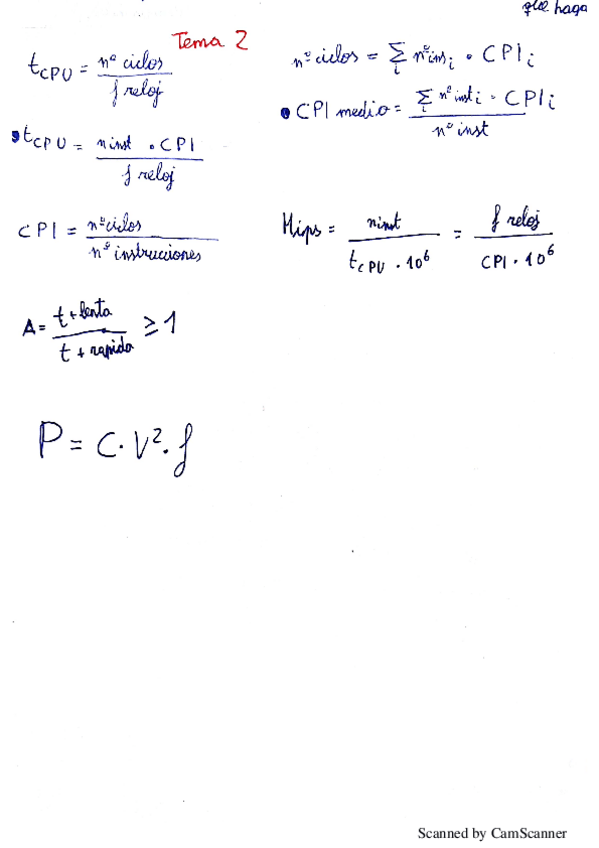 que haga
Tema 2
t_CPU = nº ciclos / f reloj
nº ciclos = Σ_i nº ins_i · CPI_i
• CPI medio = Σ_i nº inst_i · CPI_i / nº inst
• t_CPU = ninst · CPI / f reloj
CPI = nº ciclos / nº instrucciones
Mips = ninst / t_CPU · 10⁶ = f reloj / CPI · 10⁶
A = t + lenta / t + rapida ≥ 1
P = C · V² · f
Scanned by CamScanner